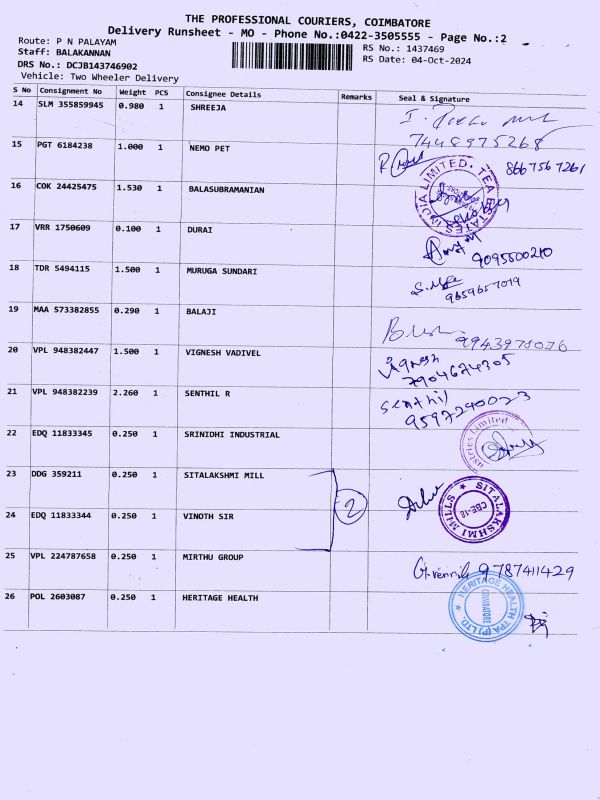 THE PROFESSIONAL COURIERS, COIMBATORE
Delivery Runsheet - MO - Phone No.:0422-3505555 - Page No.:2
Route: P N PALAYAM
RS No.: 1437469
Staff: BALAKANNAN
RS Date: 04-Oct-2024
DRS No.: DCJB143746902
Vehicle: Two Wheeler Delivery
S No Consignment No Weight PCS Consignee Details Remarks Seal & Signature
14 SLM 355859945 0.980 1 SHREEJA
7448975268
15 PGT 6184238 1.000 1 NEMO PET
8667567261
16 COK 24425475 1.530 1 BALASUBRAMANIAN
INDIA LIMITED. TEA ESTATES
17 VRR 1750609 0.100 1 DURAI
9095500210
18 TDR 5494115 1.500 1 MURUGA SUNDARI
9659657079
19 MAA 573382855 0.290 1 BALAJI
9943975076
20 VPL 948382447 1.500 1 VIGNESH VADIVEL
Vignesh
7904674305
21 VPL 948382239 2.260 1 SENTHIL R
Senthil
9597290023
22 EDQ 11833345 0.250 1 SRINIDHI INDUSTRIAL
ustries Limited
23 DDG 359211 0.250 1 SITALAKSHMI MILL
2
SITALAKSHMI MILLS
CBE-18
24 EDQ 11833344 0.250 1 VINOTH SIR
25 VPL 224787658 0.250 1 MIRTHU GROUP
9787411429
26 POL 2603087 0.250 1 HERITAGE HEALTH
HERITAGE HEALTH TPA (P) LTD.
COIMBATORE